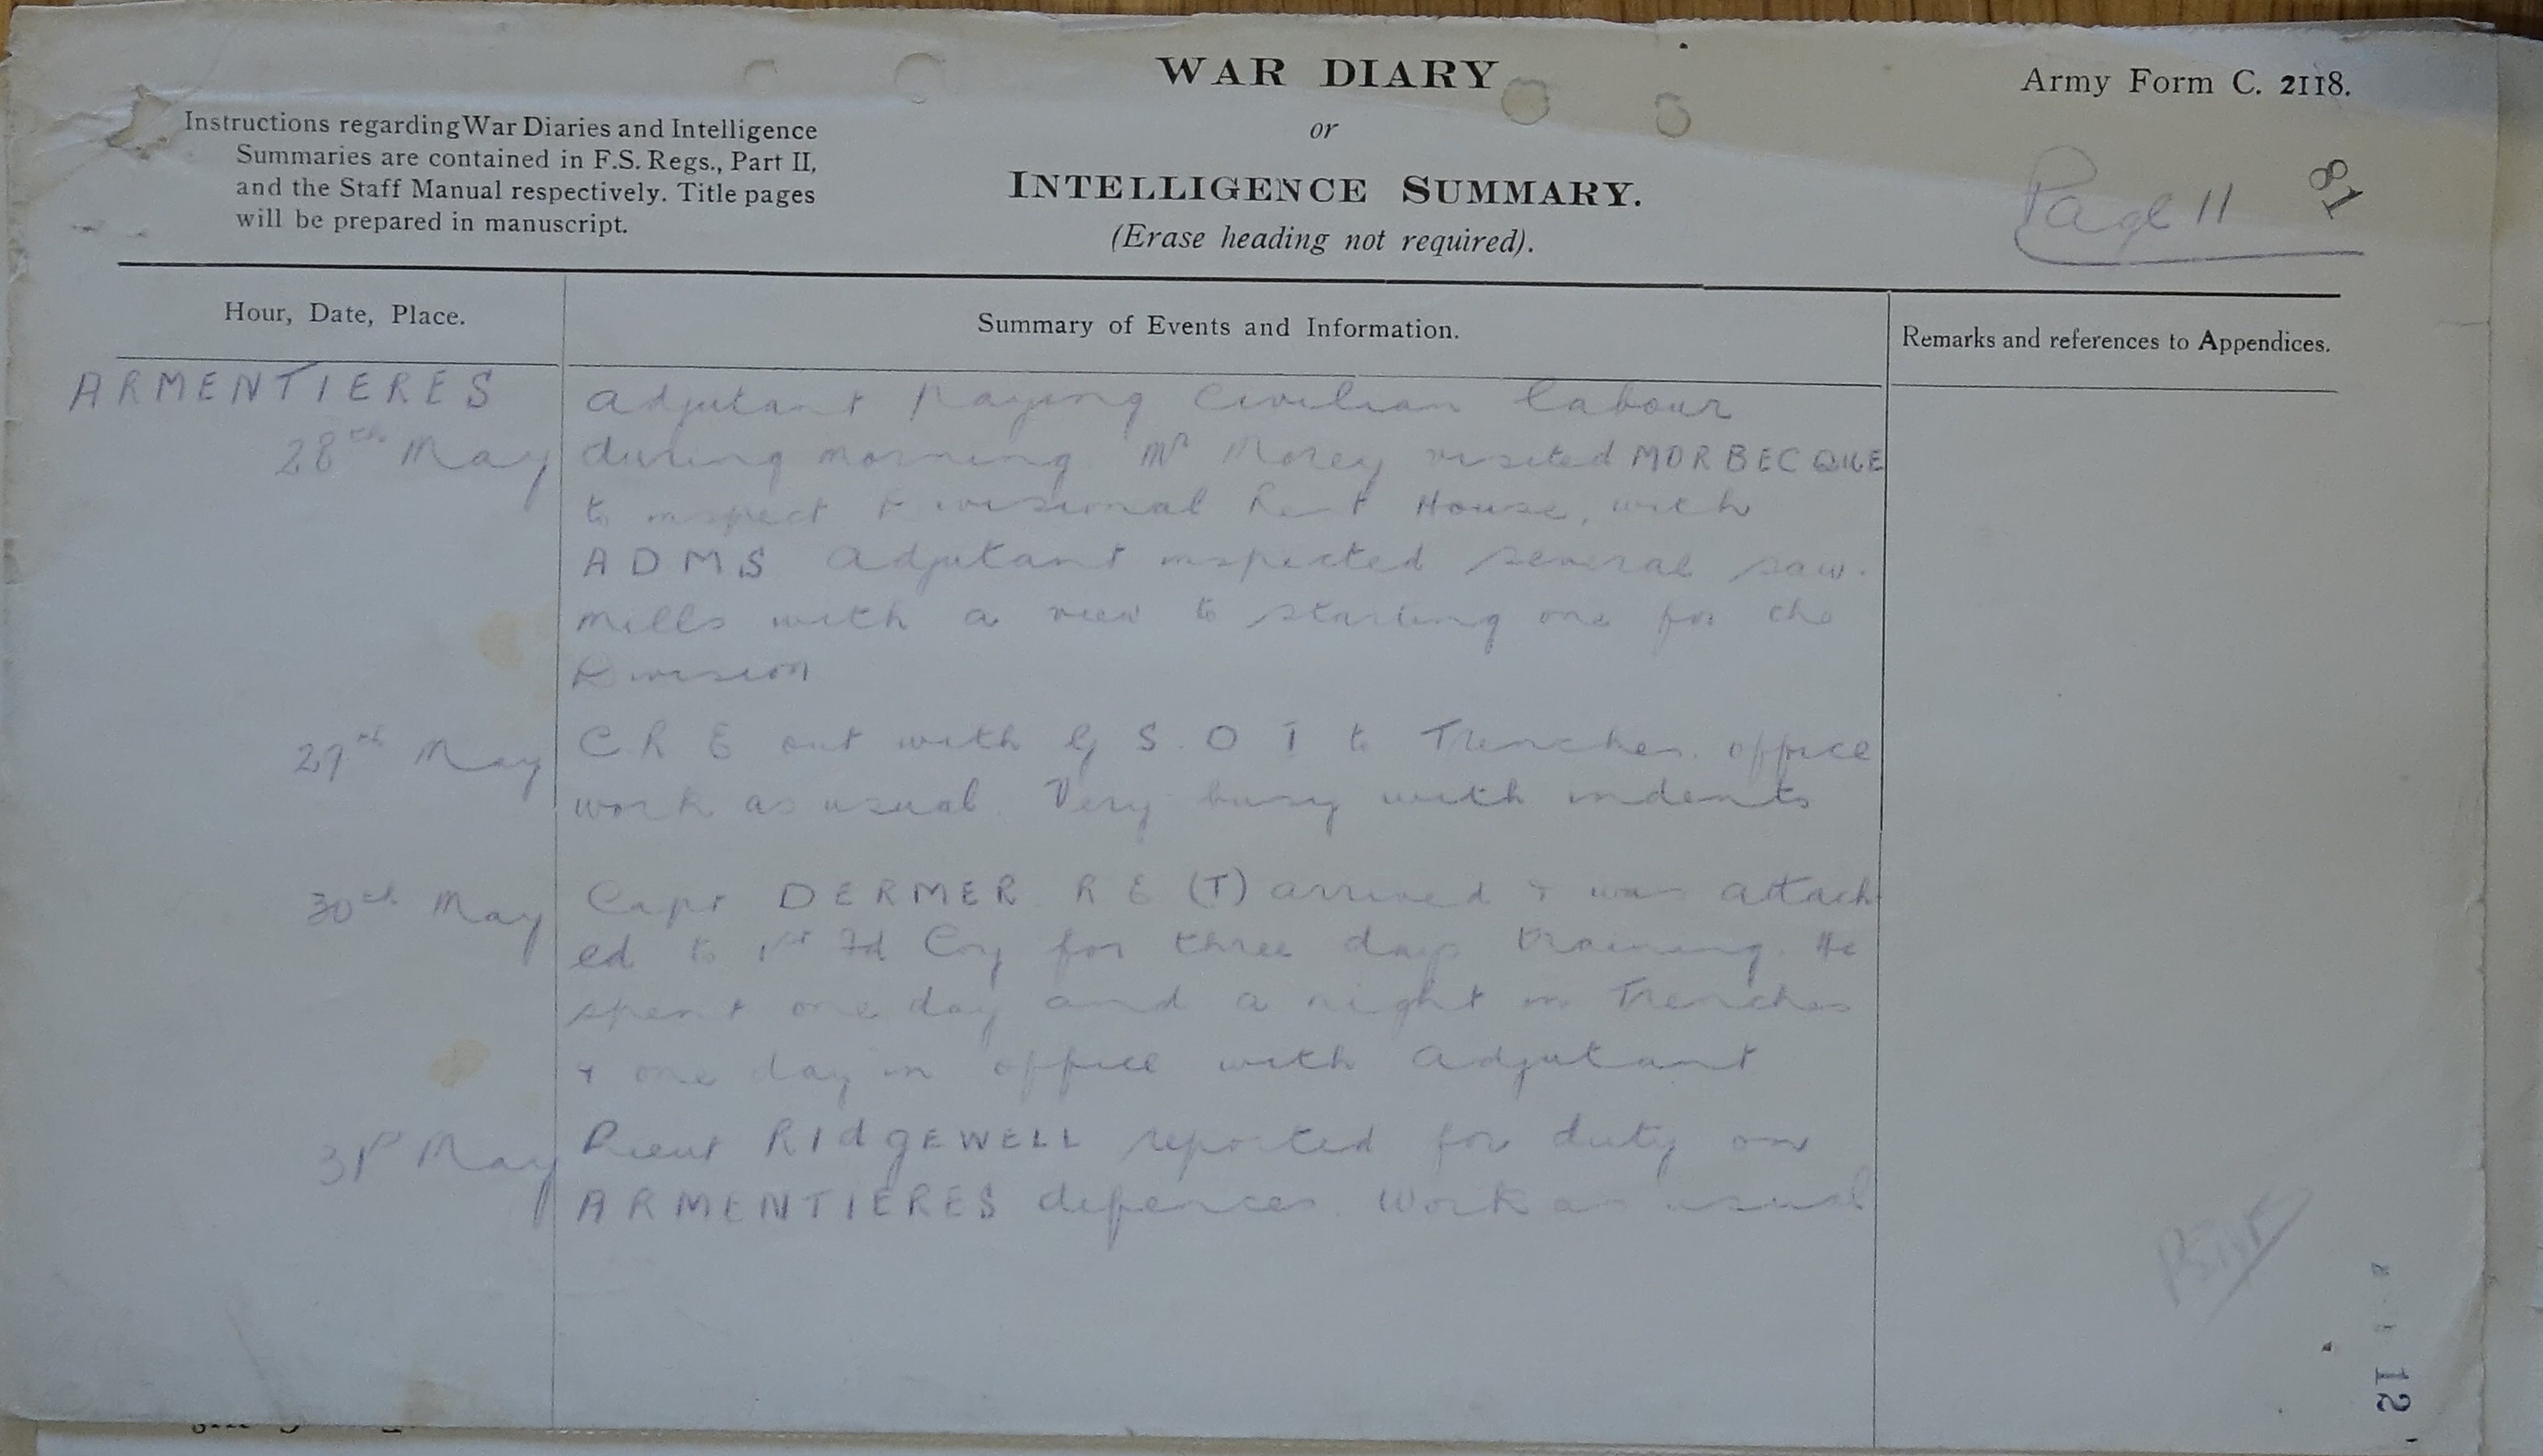 WAR DIARY
or
INTELLIGENCE SUMMARY.
(Erase heading not required).
Army Form C. 2118.
Instructions regarding War Diaries and Intelligence
Summaries are contained in F.S. Regs., Part II,
and the Staff Manual respectively. Title pages
will be prepared in manuscript.
Page 11
81
Hour, Date, Place.
Summary of Events and Information.
Remarks and references to Appendices.
ARMENTIERES
28th May
Adjutant paying Civilian labour
during morning. Mr Morey visited MORBECQUE
to inspect Divisional Rest House, with
ADMS Adjutant inspected several saw.
mills with a view to starting one for the
Division
29th May
C.R E out with G S.O I to Trenches. office
work as usual. Very busy with indents
30th May
Capt DERMER R E (T) arrived & was attach
ed to 1st Fd Coy for three days training. He
spent one day and a night in Trenches
& one day in office with Adjutant
31st May
Lieut RIdgEWELL reported for duty on
ARMENTIERES defences. Work as usual
12